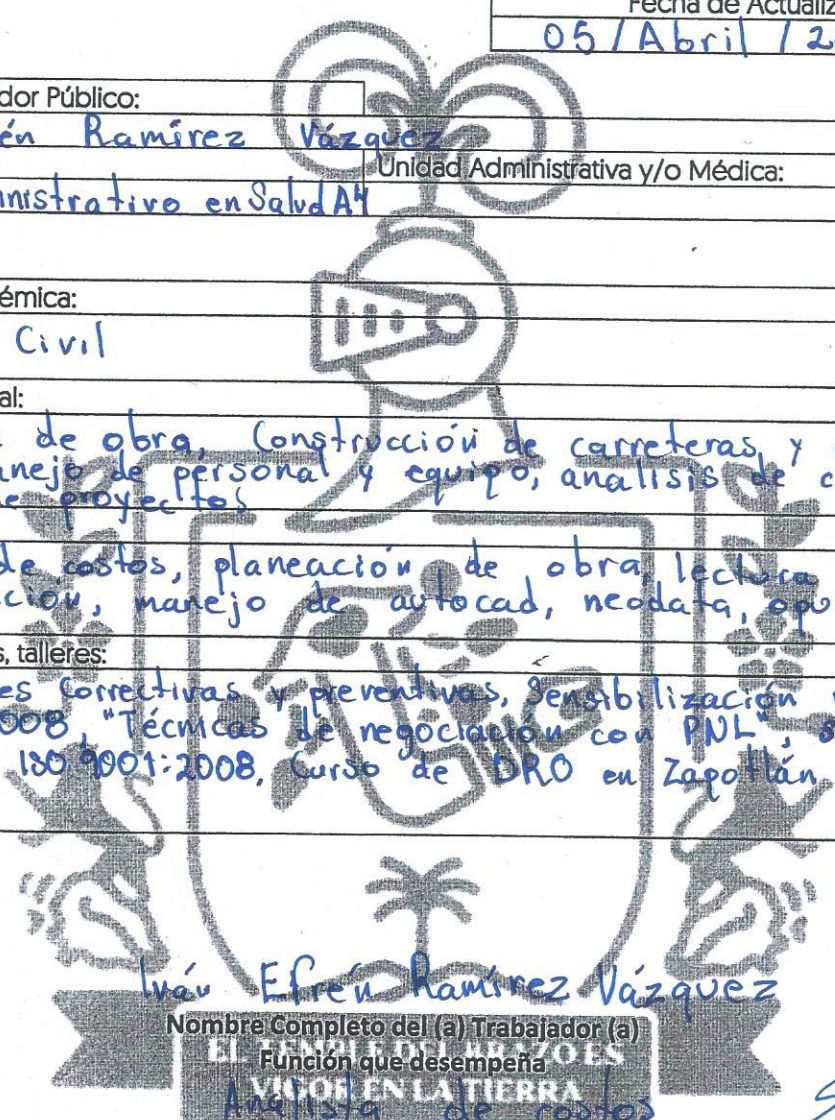 Fecha de Actualiz
05/Abril/2
dor Público:
én Ramírez Vázquez
Unidad Administrativa y/o Médica:
inistrativo en Salud A4
émica:
Civil
al:
de obra, Construcción de carreteras, y
anejo de personal y equipo, analisis de c
e proyectos
de costos, planeación de obra, lectura
ción, manejo de autocad, neodata, opu
s, talleres:
es Correctivas y preventivas, Sensibilización
008, "Técnicas de negociación con PNL", s
ISO 9001:2008, Curso de DRO en Zapotlán
Iván Efrén Ramírez Vázquez
Nombre Completo del (a) Trabajador (a)
Función que desempeña
EL TEMPLE DEL BRAZO ES
VIGOR EN LA TIERRA
Analista de costos